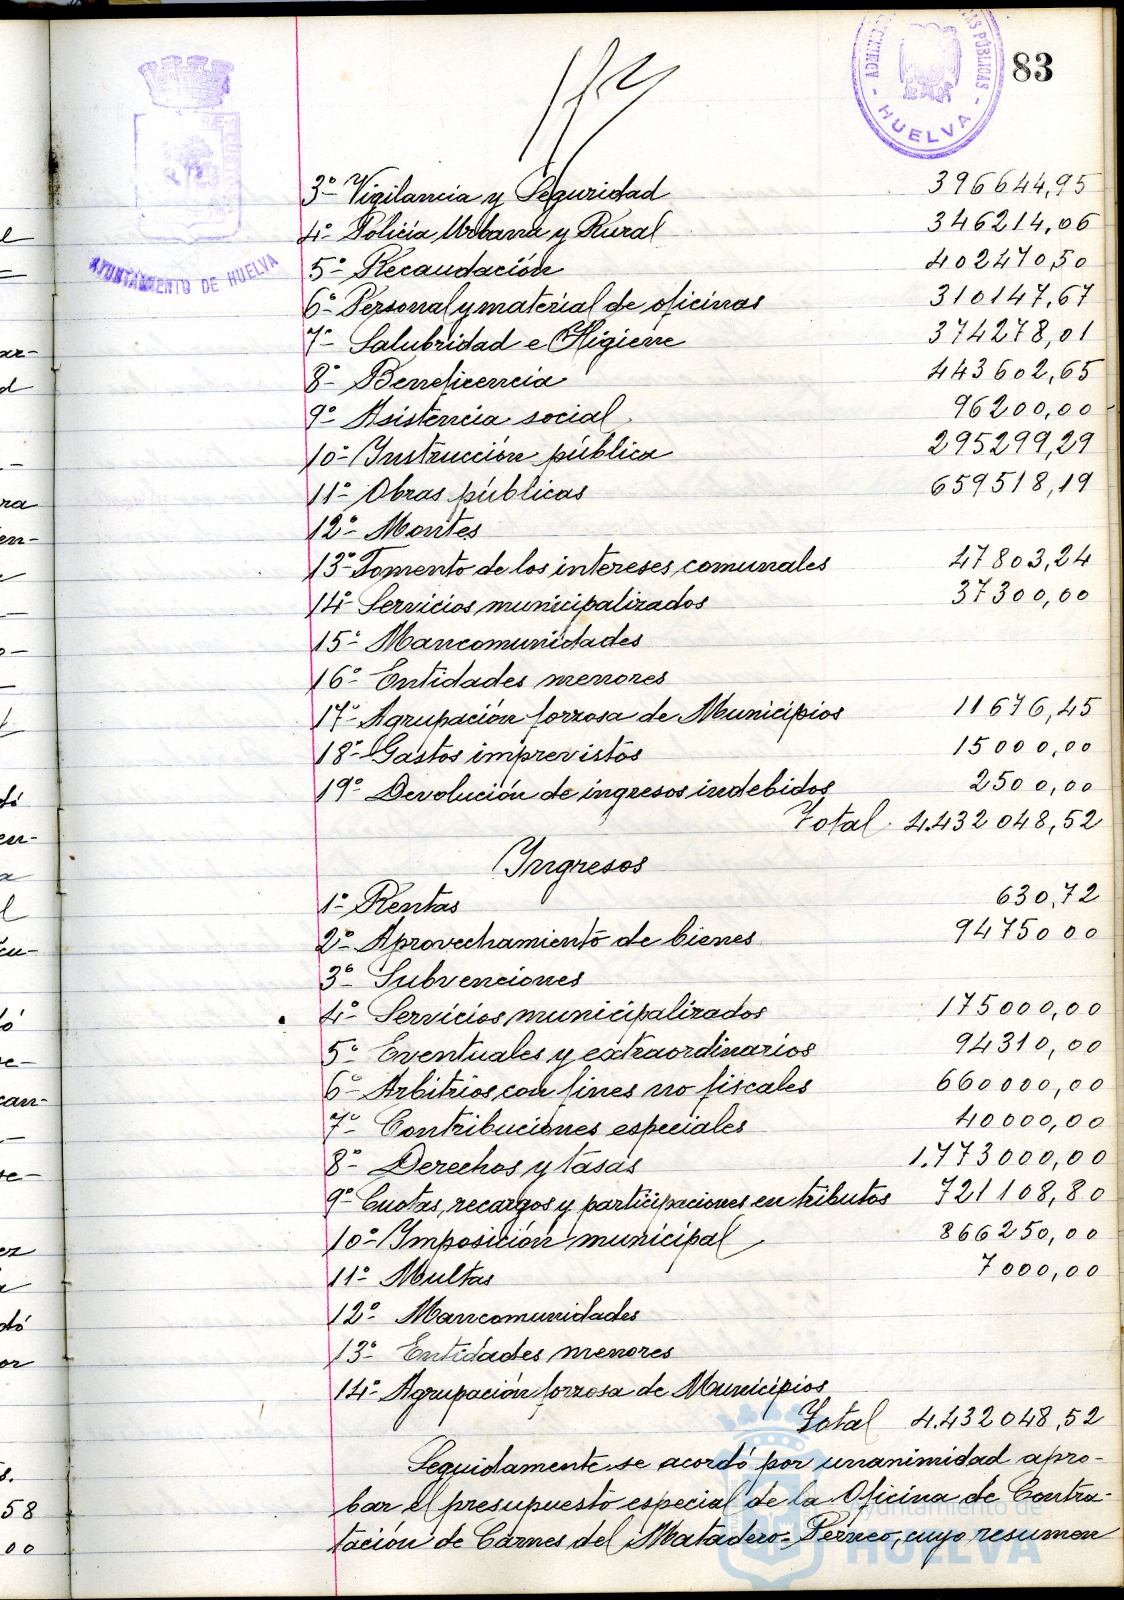 83
ADMINIS
AS PÚBLICAS
- HUELVA -
AYUNTAMIENTO DE HUELVA
3º- Vigilancia y Seguridad 396644,95
4º- Policía Urbana y Rural 346214,06
5º- Recaudación 402470,50
6º- Personal y material de oficinas 310147,67
7º- Salubridad e Higiene 374278,01
8º- Beneficencia 443602,65
9º- Asistencia social 96200,00
10º- Instrucción pública 295299,29
11º- Obras públicas 659518,19
12º- Montes
13º- Fomento de los intereses comunales 47803,24
14º- Servicios municipalizados 37300,00
15º- Mancomunidades
16º- Entidades menores
17º- Agrupación forzosa de Municipios 11676,45
18º- Gastos imprevistos 15000,00
19º- Devolución de ingresos indebidos 2500,00
Total 4.432048,52
Ingresos
1º- Rentas 630,72
2º- Aprovechamiento de bienes 9475000
3º- Subvenciones
4º- Servicios municipalizados 175000,00
5º- Eventuales y extraordinarios 94310,00
6º- Arbitrios con fines no fiscales 660000,00
7º- Contribuciones especiales 40000,00
8º- Derechos y tasas 1.773000,00
9º- Cuotas, recargos y participaciones en tributos 721108,80
10º- Imposición municipal 866250,00
11º- Multas 7000,00
12º- Mancomunidades
13º- Entidades menores
14º- Agrupación forzosa de Municipios
Total 4.432048,52
Seguidamente se acordó por unanimidad apro-
bar el presupuesto especial de la Oficina de Contra-
tación de Carnes del Matadero- Pérneo, cuyo resumen
Ayuntamiento de
HUELVA
58
00